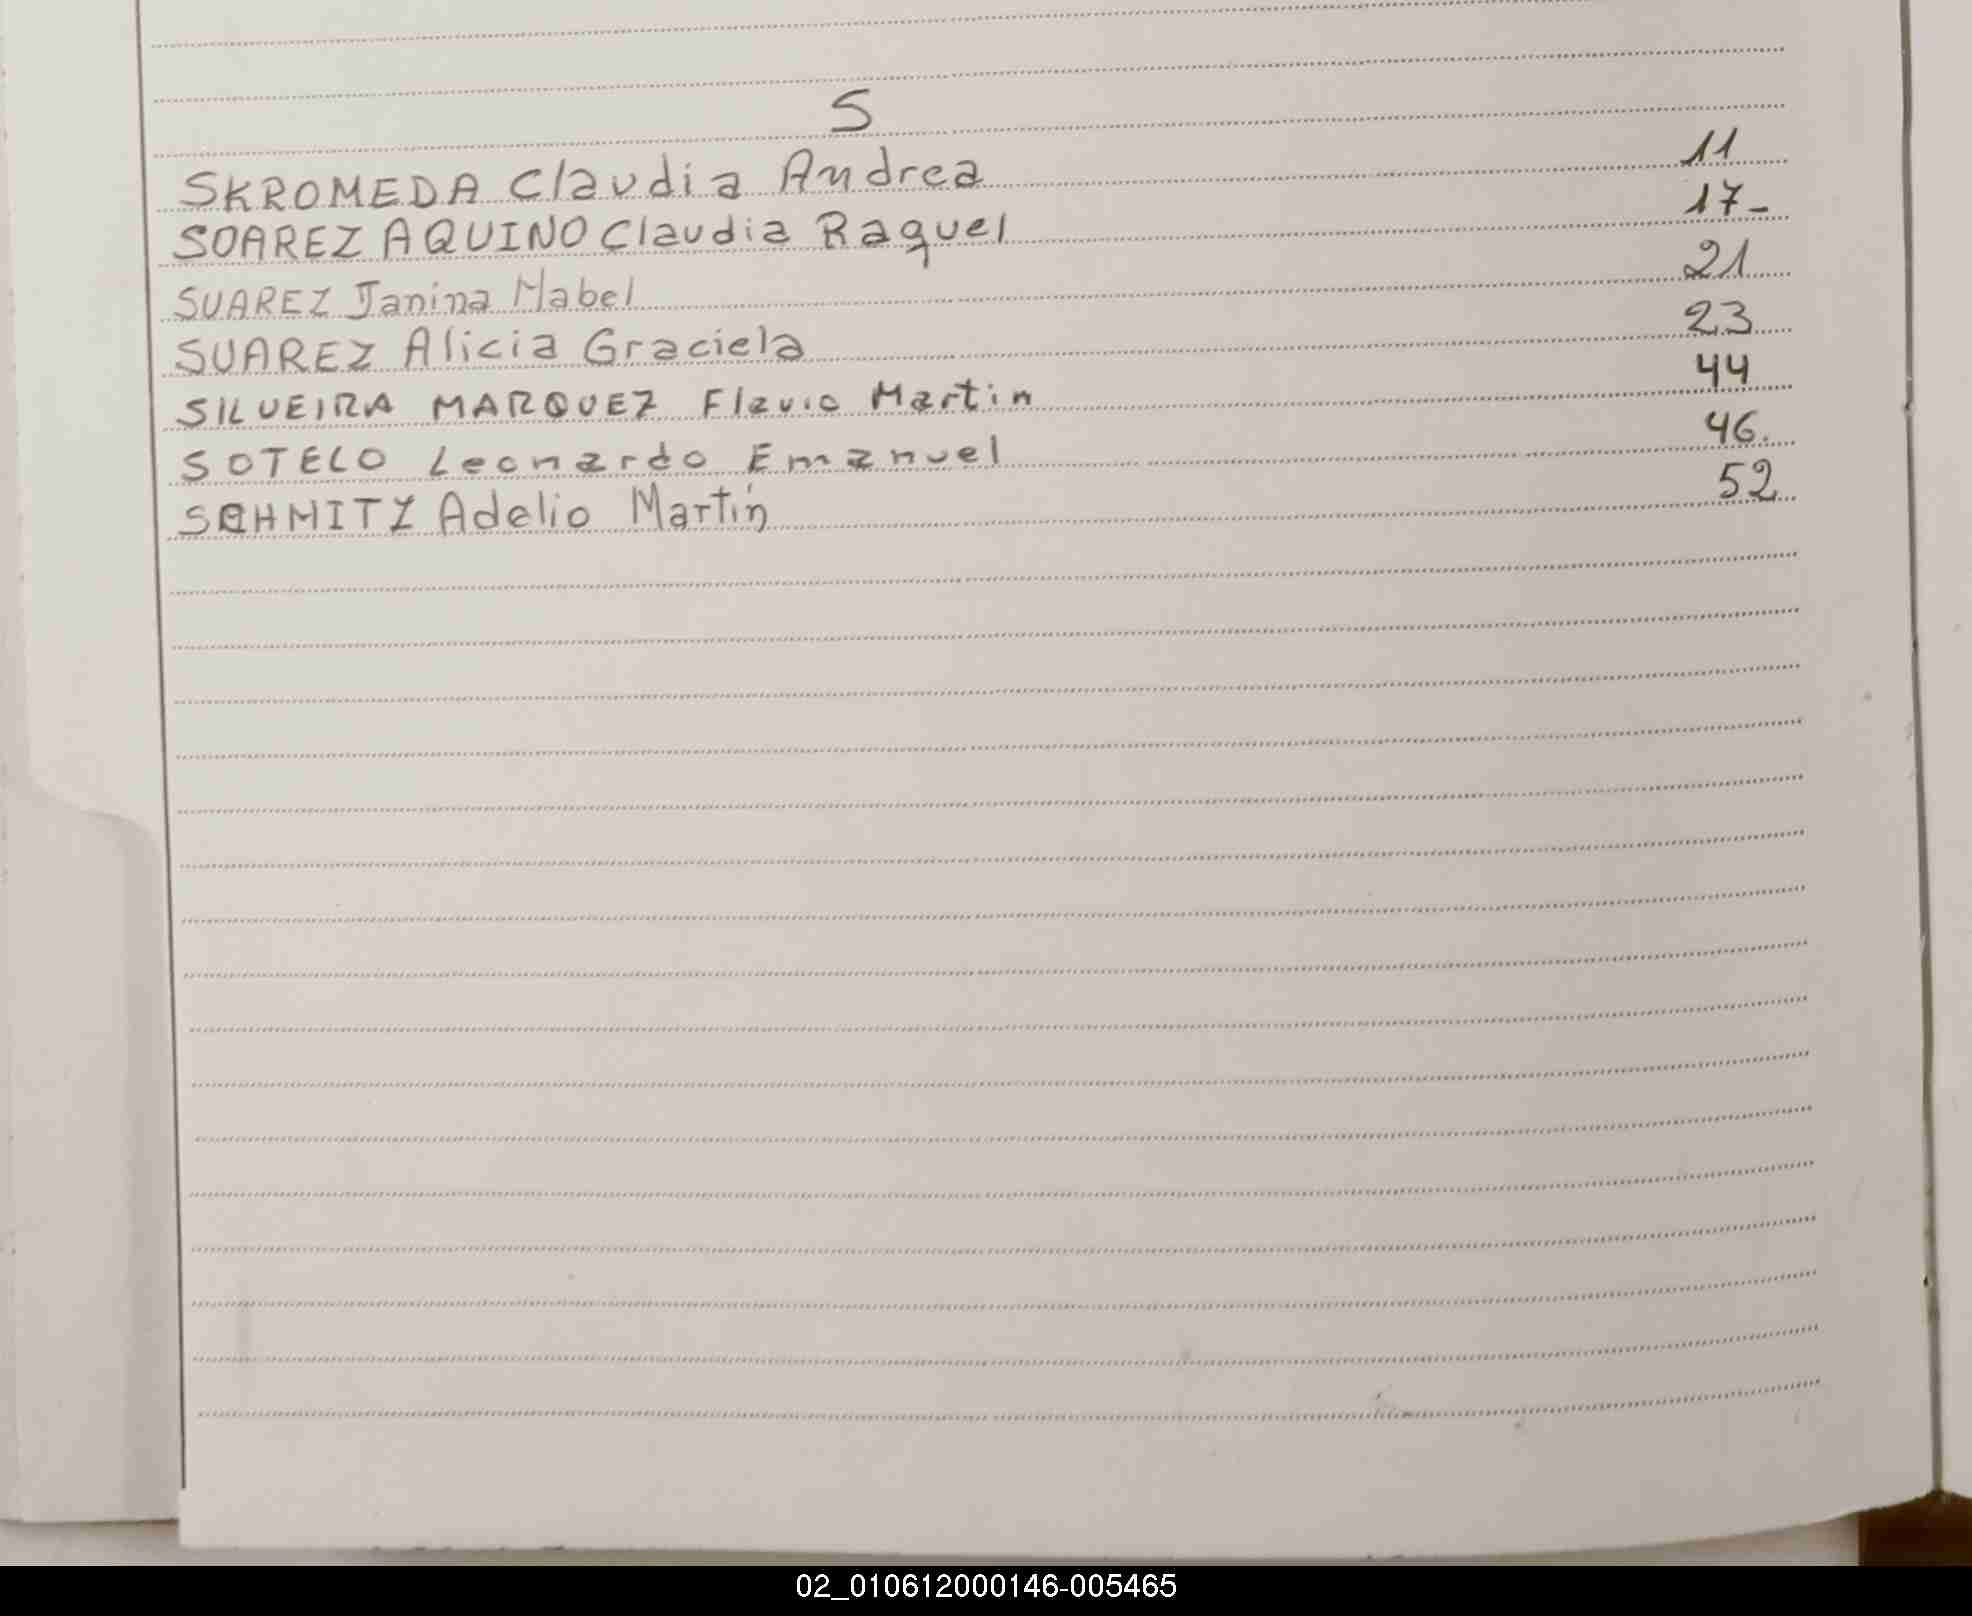 S
SKROMEDA Claudia Andrea 11
SOAREZ AQUINO Claudia Raquel 17-
SUAREZ Janina Mabel 21
SUAREZ Alicia Graciela 23
SILVEIRA MARQUEZ Flavio Martin 44
SOTELO Leonardo Emanuel 46.
SCHMITZ Adelio Martín 52
02_010612000146-005465